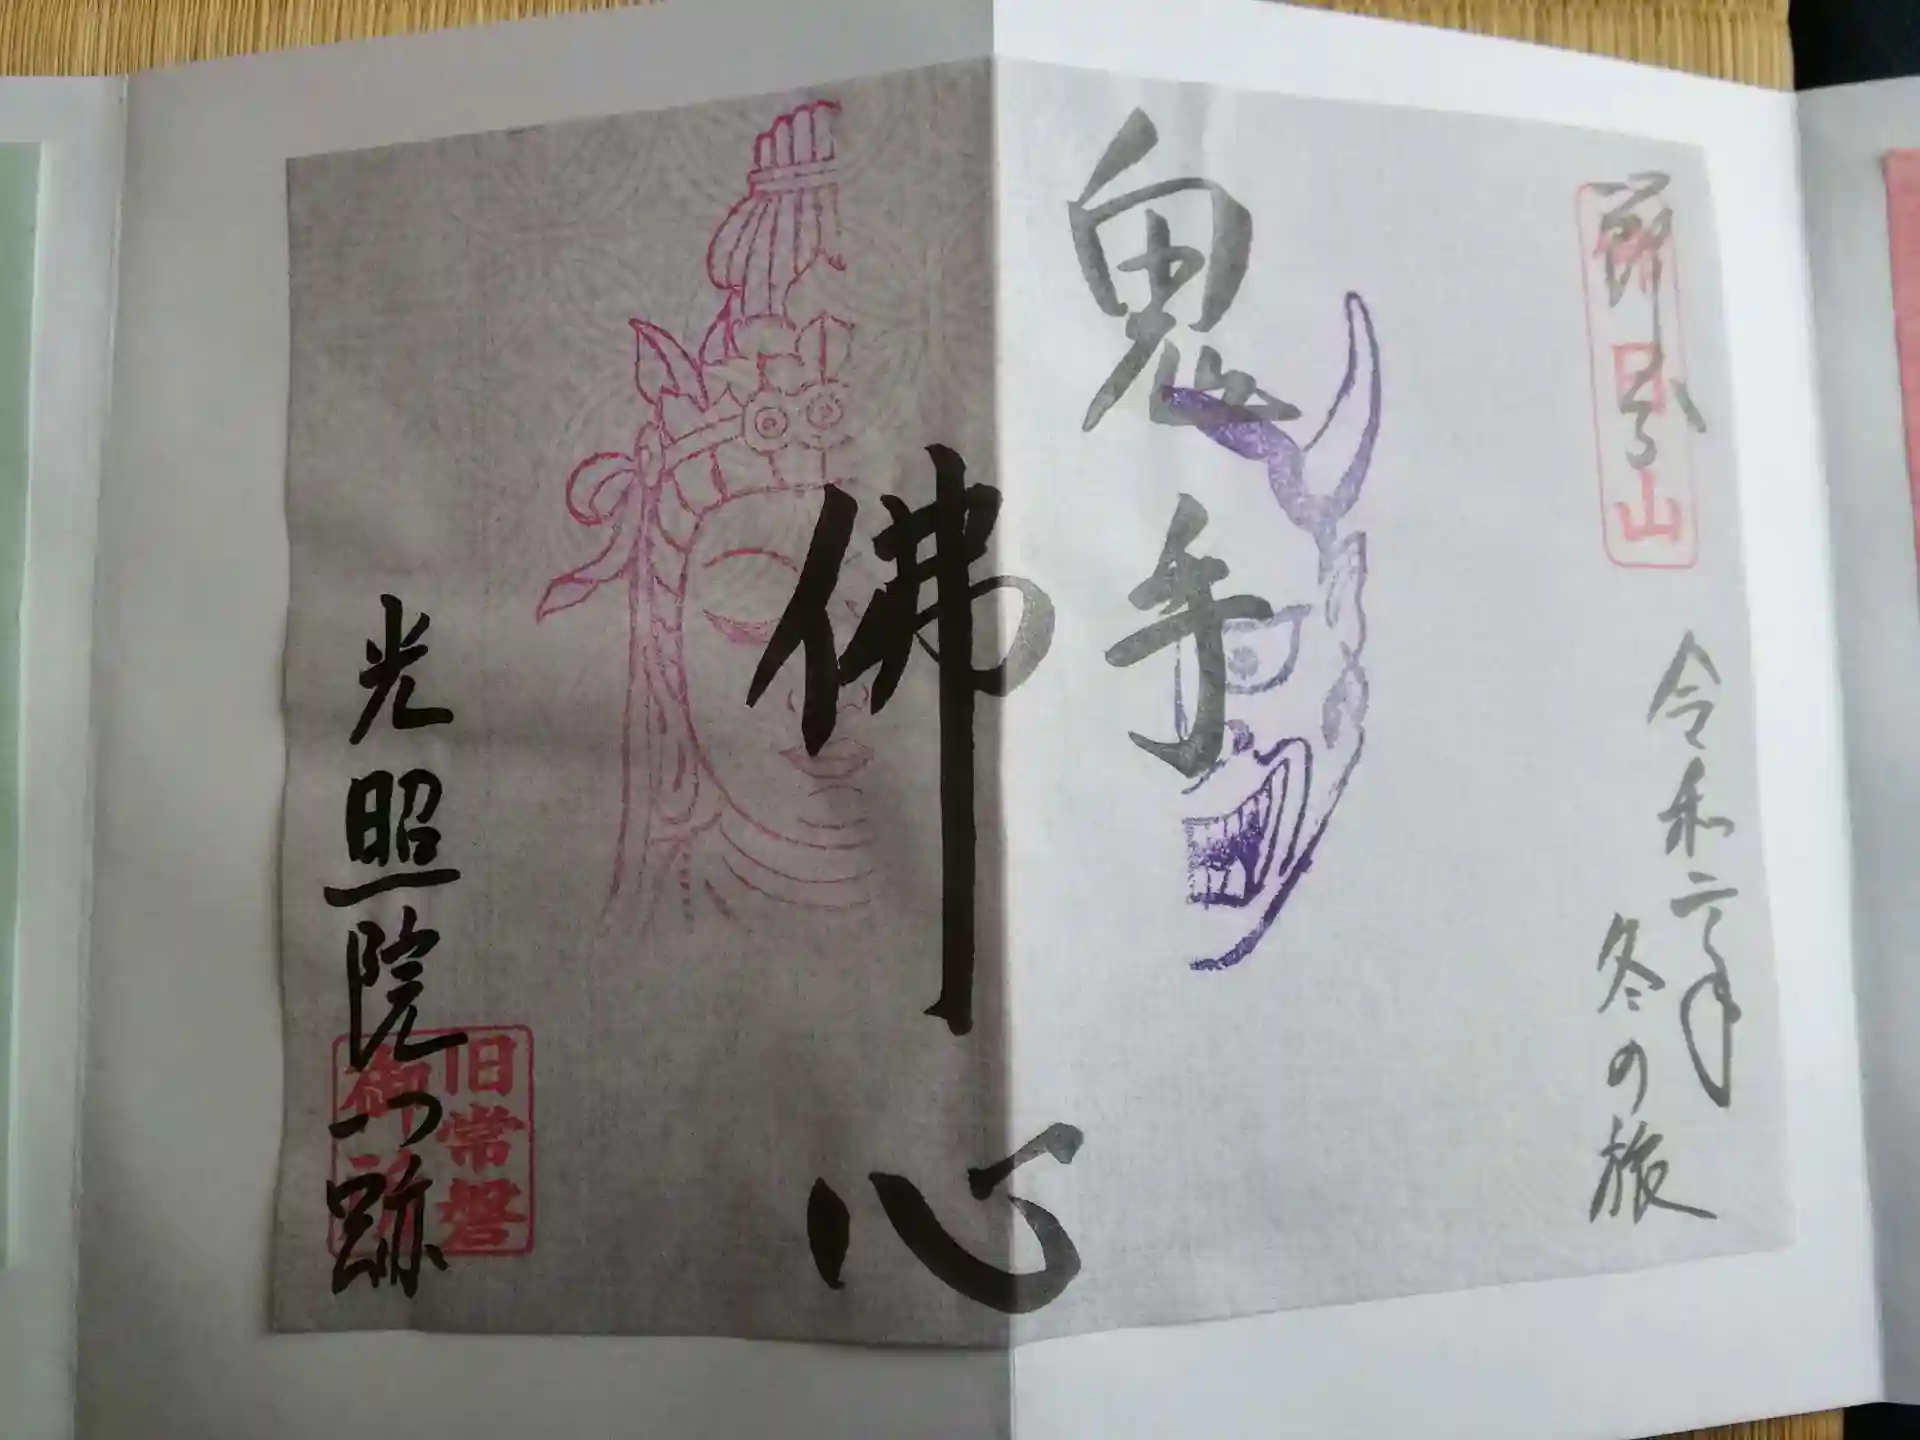 令和二年
冬の旅
鬼手
佛心
光照院門跡
旧常磐
御所